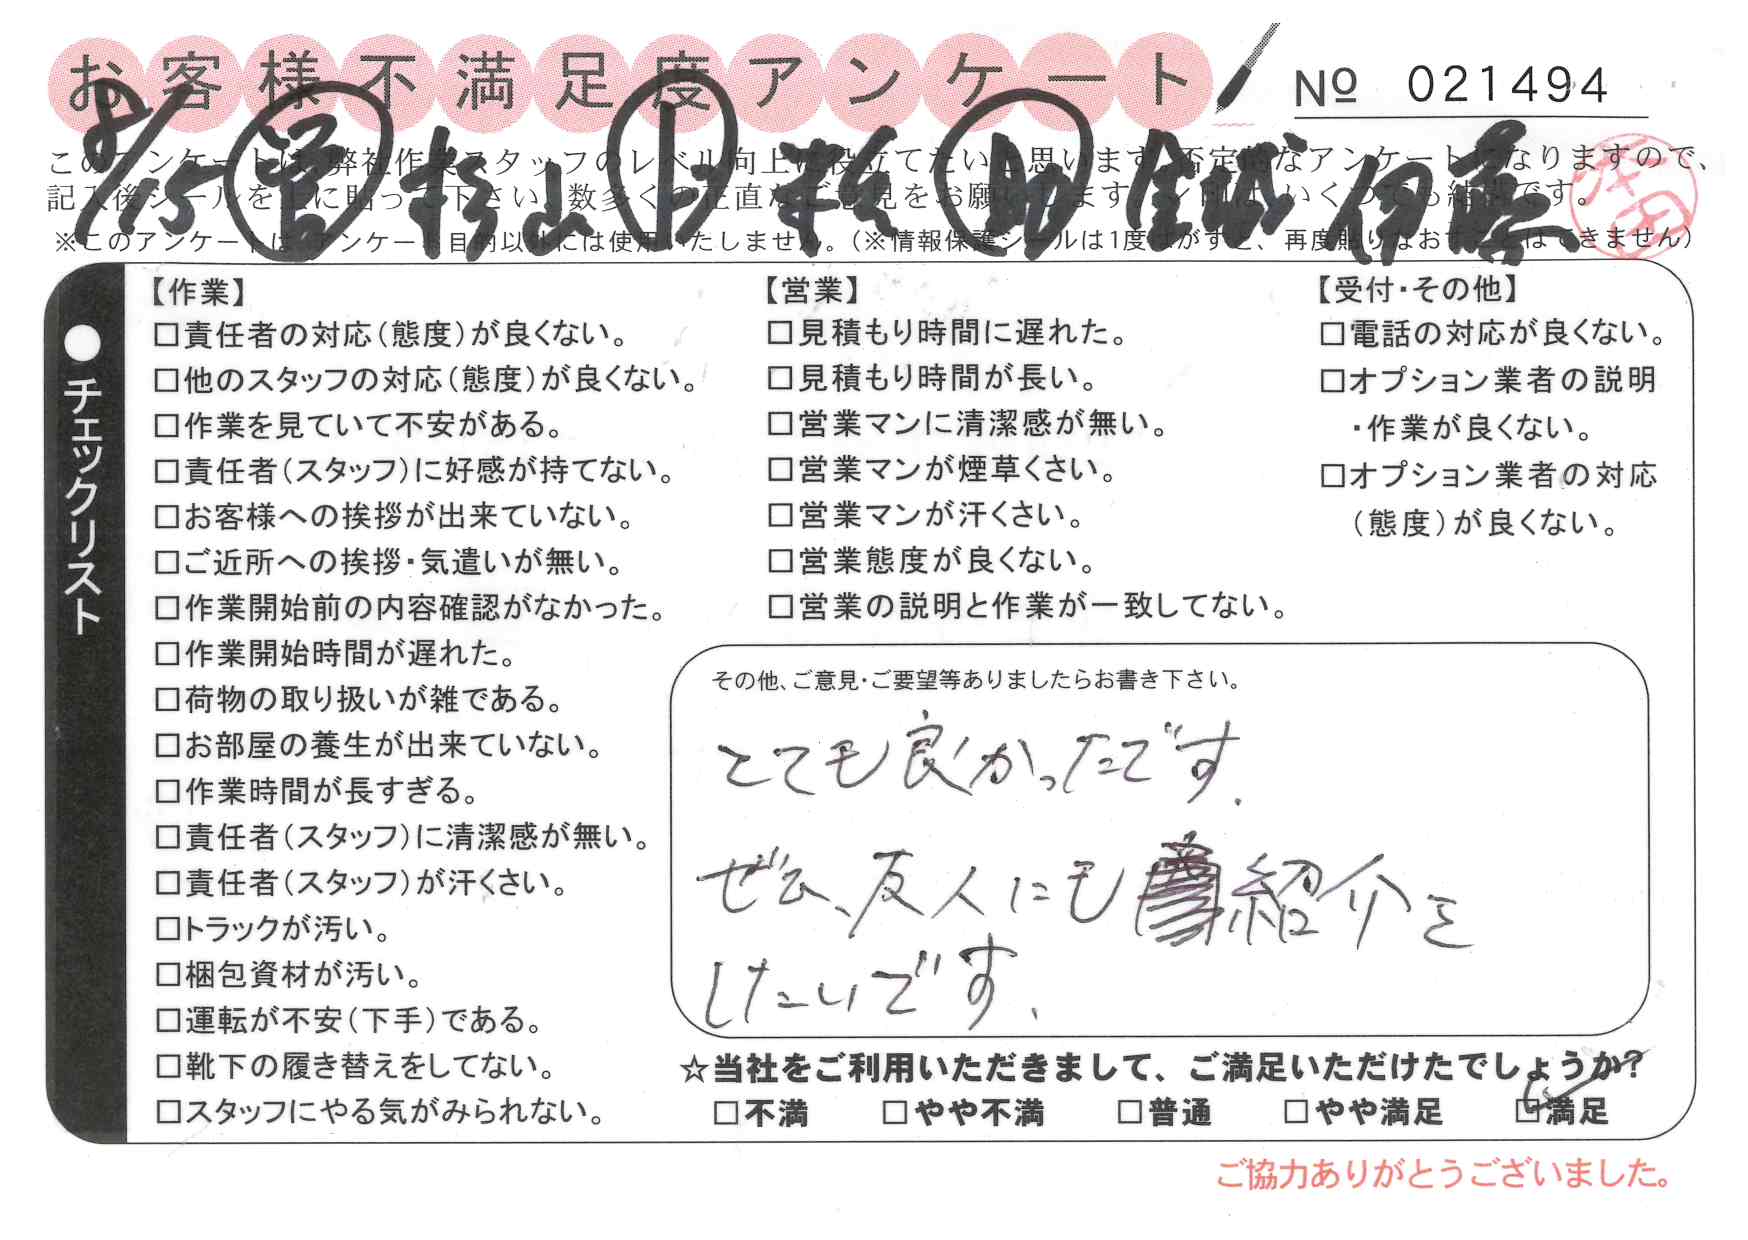 お客様不満足度アンケート
No 021494
8/15 営 杉山 ト 助 伊藤
このアンケートは、弊社作業スタッフのレベル向上に役立てたいと思います。否定的なアンケートになりますので、
記入後シールを上に貼って下さい。数多くの正直なご意見をお願いします。
※このアンケートは、アンケート目的以外には使用いたしません。(※情報保護シールは1度はがすと、再度貼りなおすことはできません)
●チェックリスト
【作業】
□責任者の対応(態度)が良くない。
□他のスタッフの対応(態度)が良くない。
□作業を見ていて不安がある。
□責任者(スタッフ)に好感が持てない。
□お客様への挨拶が出来ていない。
□ご近所への挨拶・気遣いが無い。
□作業開始前の内容確認がなかった。
□作業開始時間が遅れた。
□荷物の取り扱いが雑である。
□お部屋の養生が出来ていない。
□作業時間が長すぎる。
□責任者(スタッフ)に清潔感が無い。
□責任者(スタッフ)が汗くさい。
□トラックが汚い。
□梱包資材が汚い。
□運転が不安(下手)である。
□靴下の履き替えをしてない。
□スタッフにやる気がみられない。
【営業】
□見積もり時間に遅れた。
□見積もり時間が長い。
□営業マンに清潔感が無い。
□営業マンが煙草くさい。
□営業マンが汗くさい。
□営業態度が良くない。
□営業の説明と作業が一致してない。
【受付・その他】
□電話の対応が良くない。
□オプション業者の説明
・作業が良くない。
□オプション業者の対応
(態度)が良くない。
その他、ご意見・ご要望等ありましたらお書き下さい。
とても良かったです.
ぜひ、友人にも紹介を
したいです.
☆当社をご利用いただきまして、ご満足いただけたでしょうか?
□不満 □やや不満 □普通 □やや満足 ☑満足
ご協力ありがとうございました。